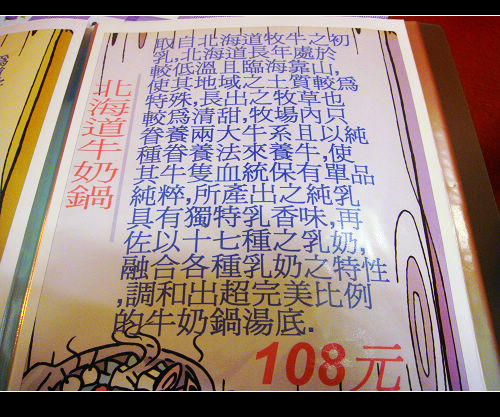 北海道牛奶鍋
取自北海道牧牛之初
乳,北海道長年處於
較低溫且臨海靠山,
使其地域之土質較為
特殊,長出之牧草也
較為清甜,牧場內只
眷養兩大牛系且以純
種眷養法來養牛,使
其牛隻血統保有單品
純粹,所產出之純乳
具有獨特乳香味,再
佐以十七種之乳奶,
融合各種乳奶之特性
,調和出超完美比例
的牛奶鍋湯底.
108元